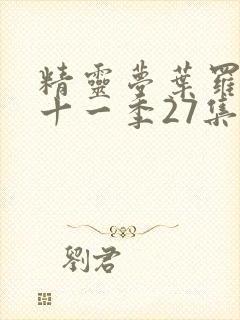 精靈夢葉羅
十一季27集
劉君